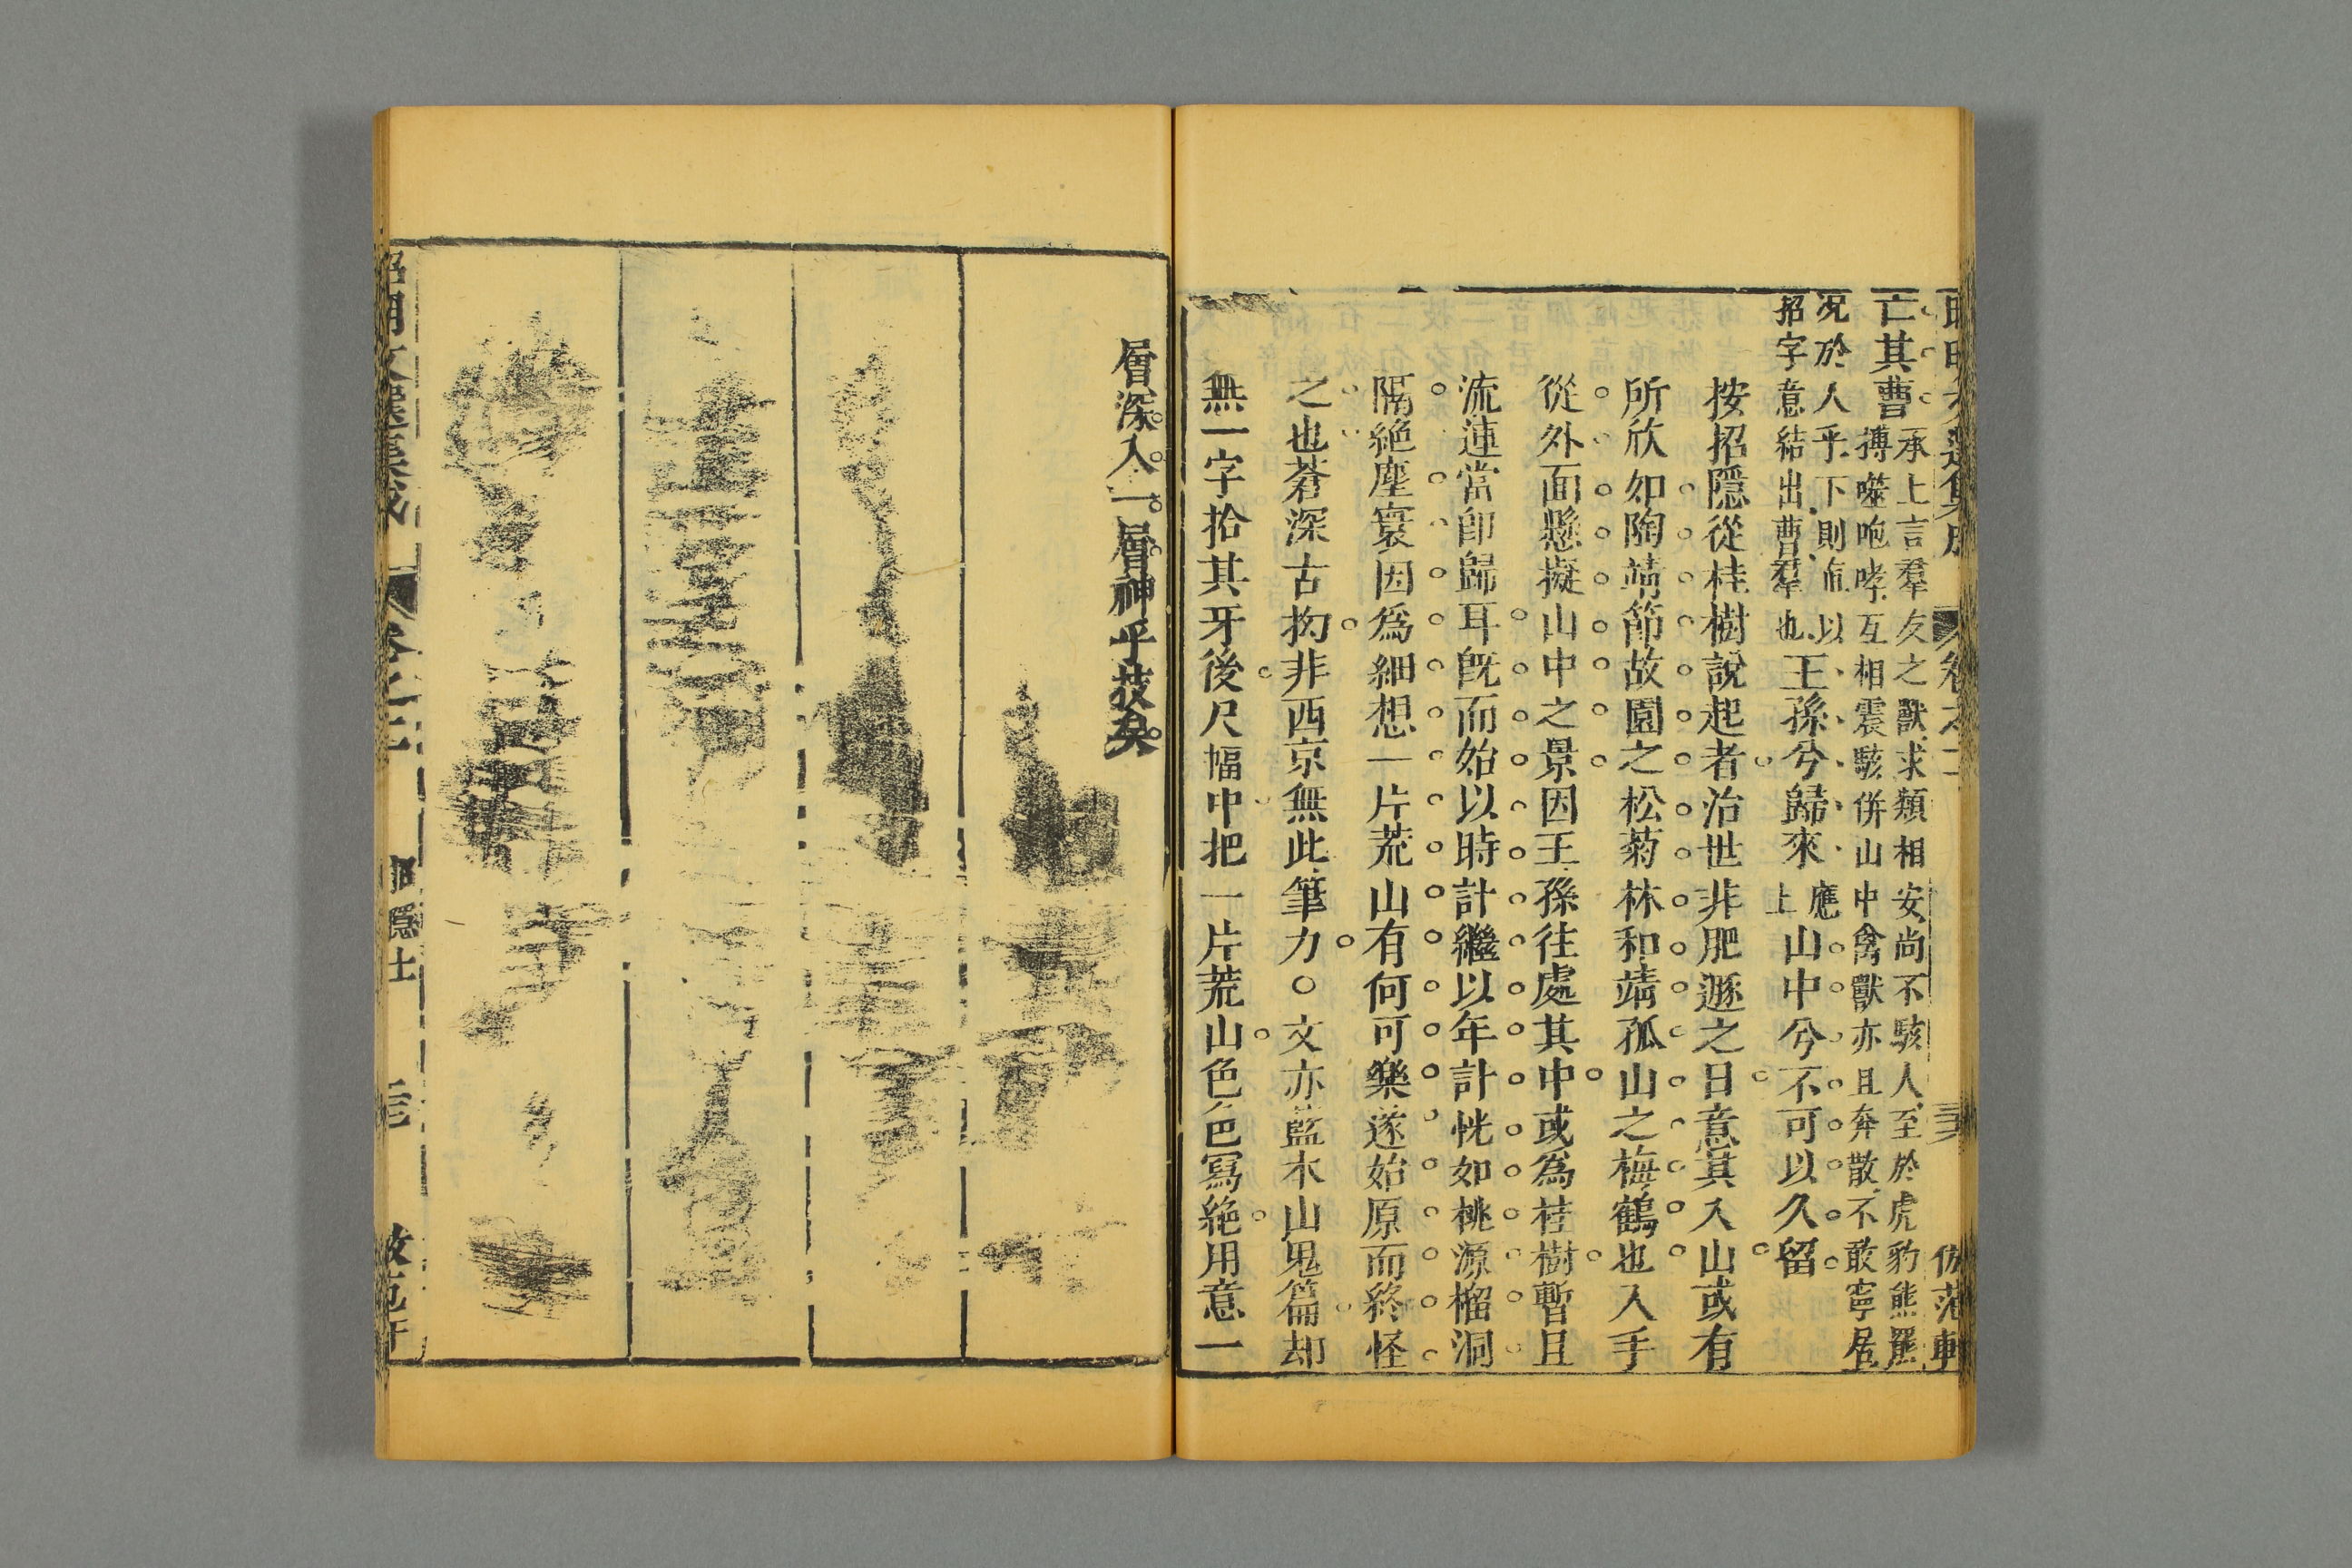 亡其曹承上言羣友之獸求類相安尚不駭人至於虎豹熊羆
搏噬咆哮互相震駭併山中禽獸亦且奔散不敢寧居
况於人乎下則直以
招字意結出曹羣也王孫兮歸來應上山中兮不可以久留
按招隱從桂樹說起者治世非肥遯之日意其入山或有
所欣如陶靖節故園之松菊林和靖孤山之梅鶴也入手
從外面懸擬山中之景因王孫往處其中或為桂樹暫且
流連當卽歸耳旣而始以時計繼以年計恍如桃源榴洞
隔絶塵寰因爲細想一片荒山有何可樂遂始原而終怪
之也蒼深古抝非西京無此筆力○文亦藍本山鬼篇却
無一字拾其牙後尺幅中把一片荒山色色寫絶用意一
層深入一層神乎技矣